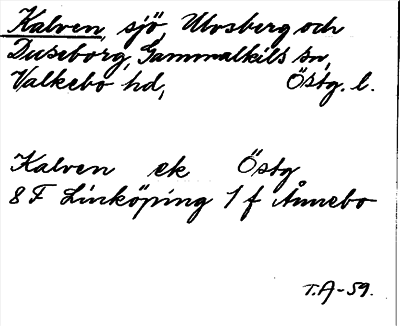 Kalven, sjö, Ulvsberg och
Duseborg, Gammalkils sn,
Valkebo hd, Östg. l.
Kalven ek Östg
8 F Linköping 1 f Ånnebo
T.A-59.